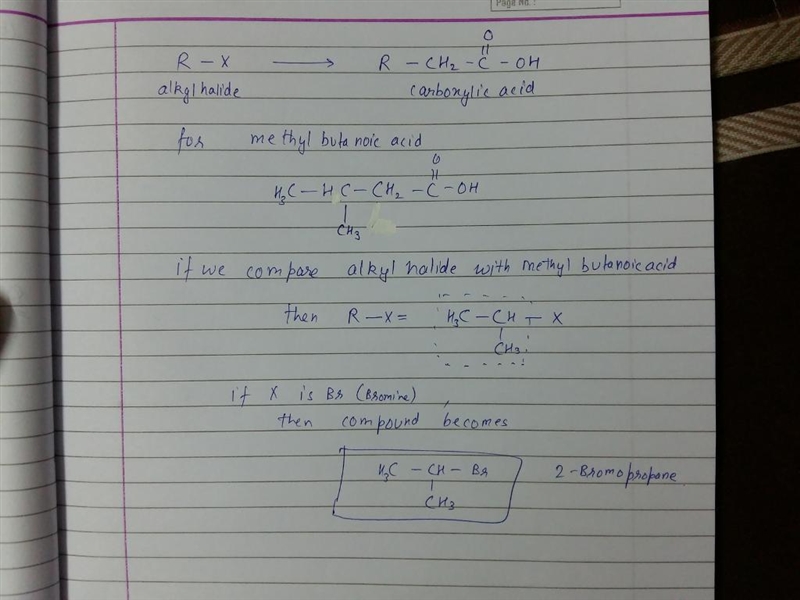 Page No.:
O
R - X ⟶ R - CH₂ - C - OH
alkyl halide carboxylic acid
for methyl butanoic acid
O
H₃C - HC - CH₂ - C - OH
CH₃
if we compare alkyl halide with methyl butanoic acid
then R - X = H₃C - CH - X
CH₃
if X is Br (Bromine),
then compound becomes
H₃C - CH - Br 2-Bromopropane.
CH₃